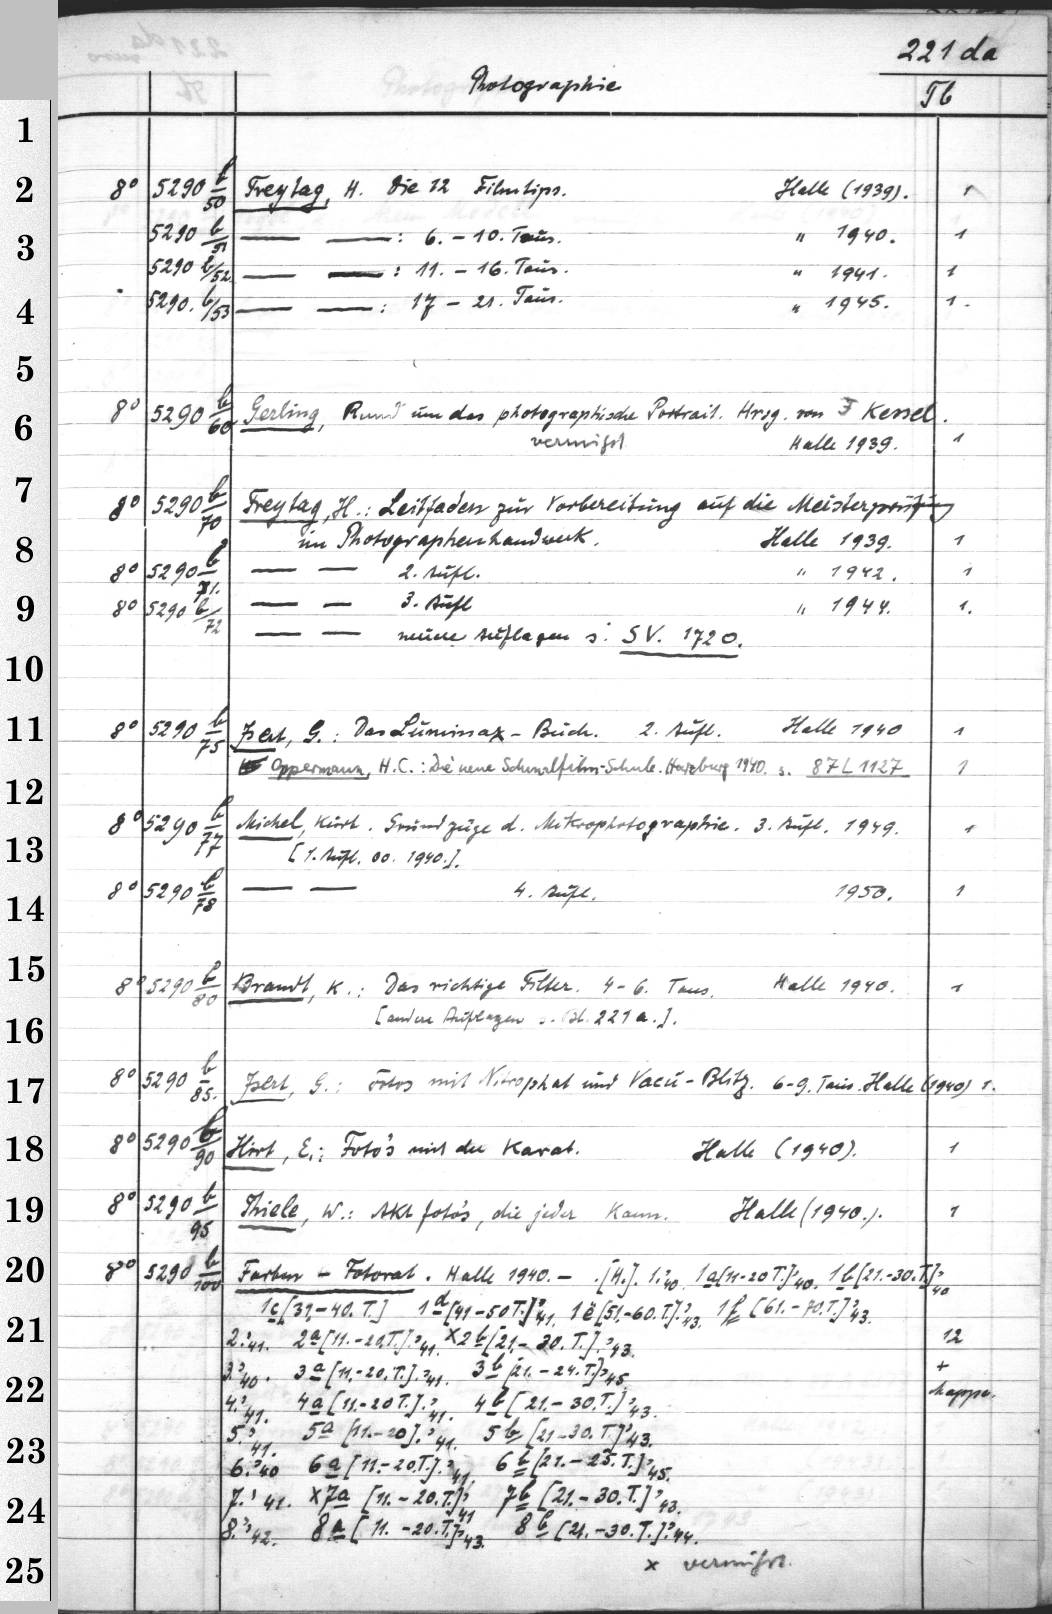 221 da
Photographie Tb
1
2 8° 5290 b/50 Freytag, H. Die 12 Filmtips. Halle (1939). 1
3 5290 b/51 — — : 6. – 10. Taus. " 1940. 1
5290 b/52 — — : 11. – 16. Taus. " 1941. 1
4 5290. b/53 — — : 17 – 21. Taus. " 1945. 1.
5
6 8° 5290 b/60 Gerling, Rund um das photographische Portrait. Hrsg. von F Kessel.
vermißt Halle 1939. 1
7 8° 5290 b/70 Freytag, H.: Leitfaden zur Vorbereitung auf die Meisterprüfung
8 im Photographenhandwerk. Halle 1939. 1
8° 5290 b/71. — — 2. Aufl. " 1942. 1
9 8° 5290 b/72 — — 3. Aufl " 1944. 1.
— — neuere Auflagen s. SV. 1720.
10
11 8° 5290 b/75 Isert, G.: Das Luminax-Buch. 2. Aufl. Halle 1940 1
Oppermann, H.C.: Die neue Schmalfilm-Schule. Harzburg 1940. s. 87 L 1127 1
12
13 8° 5290 b/77 Michel, Kurt. Grundzüge d. Mikrophotographie. 3. Aufl. 1949. 1
[1. Aufl. oo. 1940.].
14 8° 5290 b/78 — — 4. Aufl. 1950. 1
15 8° 5290 b/80 Brandt, K.: Das richtige Filter. 4-6. Taus. Halle 1940. 1
16 [andere Auflagen s. Bl. 221 a.].
17 8° 5290 b/85. Isert, G.: Fotos mit Nitraphot und Vacu-Blitz. 6-9. Taus. Halle (1940) 1.
18 8° 5290 b/90 Hirt, E.: Foto's mit der Karat. Halle (1940). 1
19 8° 5290 b/95 Thiele, W.: Akt foto's, die jeder Kann. Halle (1940.). 1
20 8° 5290 b/100 Farben – Fotorat. Halle 1940. – .[H.]. 1.'40. 1a [11-20 T.]'40. 1b [21.-30.T.]'40
1c [31.-40. T.] 1d [41-50T.]'41. 1e [51.-60.T.]'43. 1f [61.-70.T.]'43.
21 2.'41. 2a [11.-20.T.].'41. x2b [21.-30.T.].'43. 12
22 3.'40. 3a [11.-20.T.].'41. 3b [21.-24.T.]'45 +
4.'41. 4a [11.-20T.].'41. 4b [21.-30.T.]'43. Mappe.
23 5.'41. 5a [11.-20].'41. 5b [21-30.T.]'43.
6.'40 6a [11.-20T.].'41. 6b [21.-25.T.]'45.
24 7.'41. x7a [11.-20.T.]'41 7b [21.-30.T.]'43.
8.'42. 8a [11.-20.T.]'43. 8b [21.-30.T.].'44.
25 x vermißt.